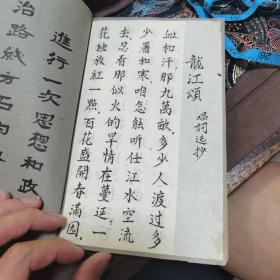 龍江頌
唱詞选抄
血和汗那九萬畝多少人渡过多
少暑和寒咱怎能听任江水空流
去忍看那似火的旱情在蔓延一
花独放紅一點百花盛開春滿园
進行一次思想和政
治路綫方面的